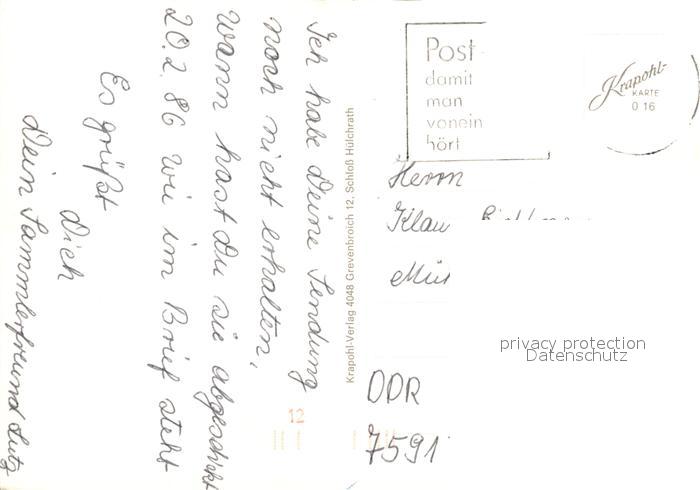 Ich habe Deine Sendung
noch nicht erhalten,
Wann hast Du sie abgeschickt
20.2.86 wie im Brief steht
Es grüßt
Dich
Dein Sammlerfreund Lutz
Krapohl-Verlag 4048 Grevenbroich 12, Schloß Hülchrath
Post
damit
man
vonein
hört
Krapohl-
KARTE
0 16
Herrn
Klau
Mül
privacy protection
Datenschutz
DDR
7591
12